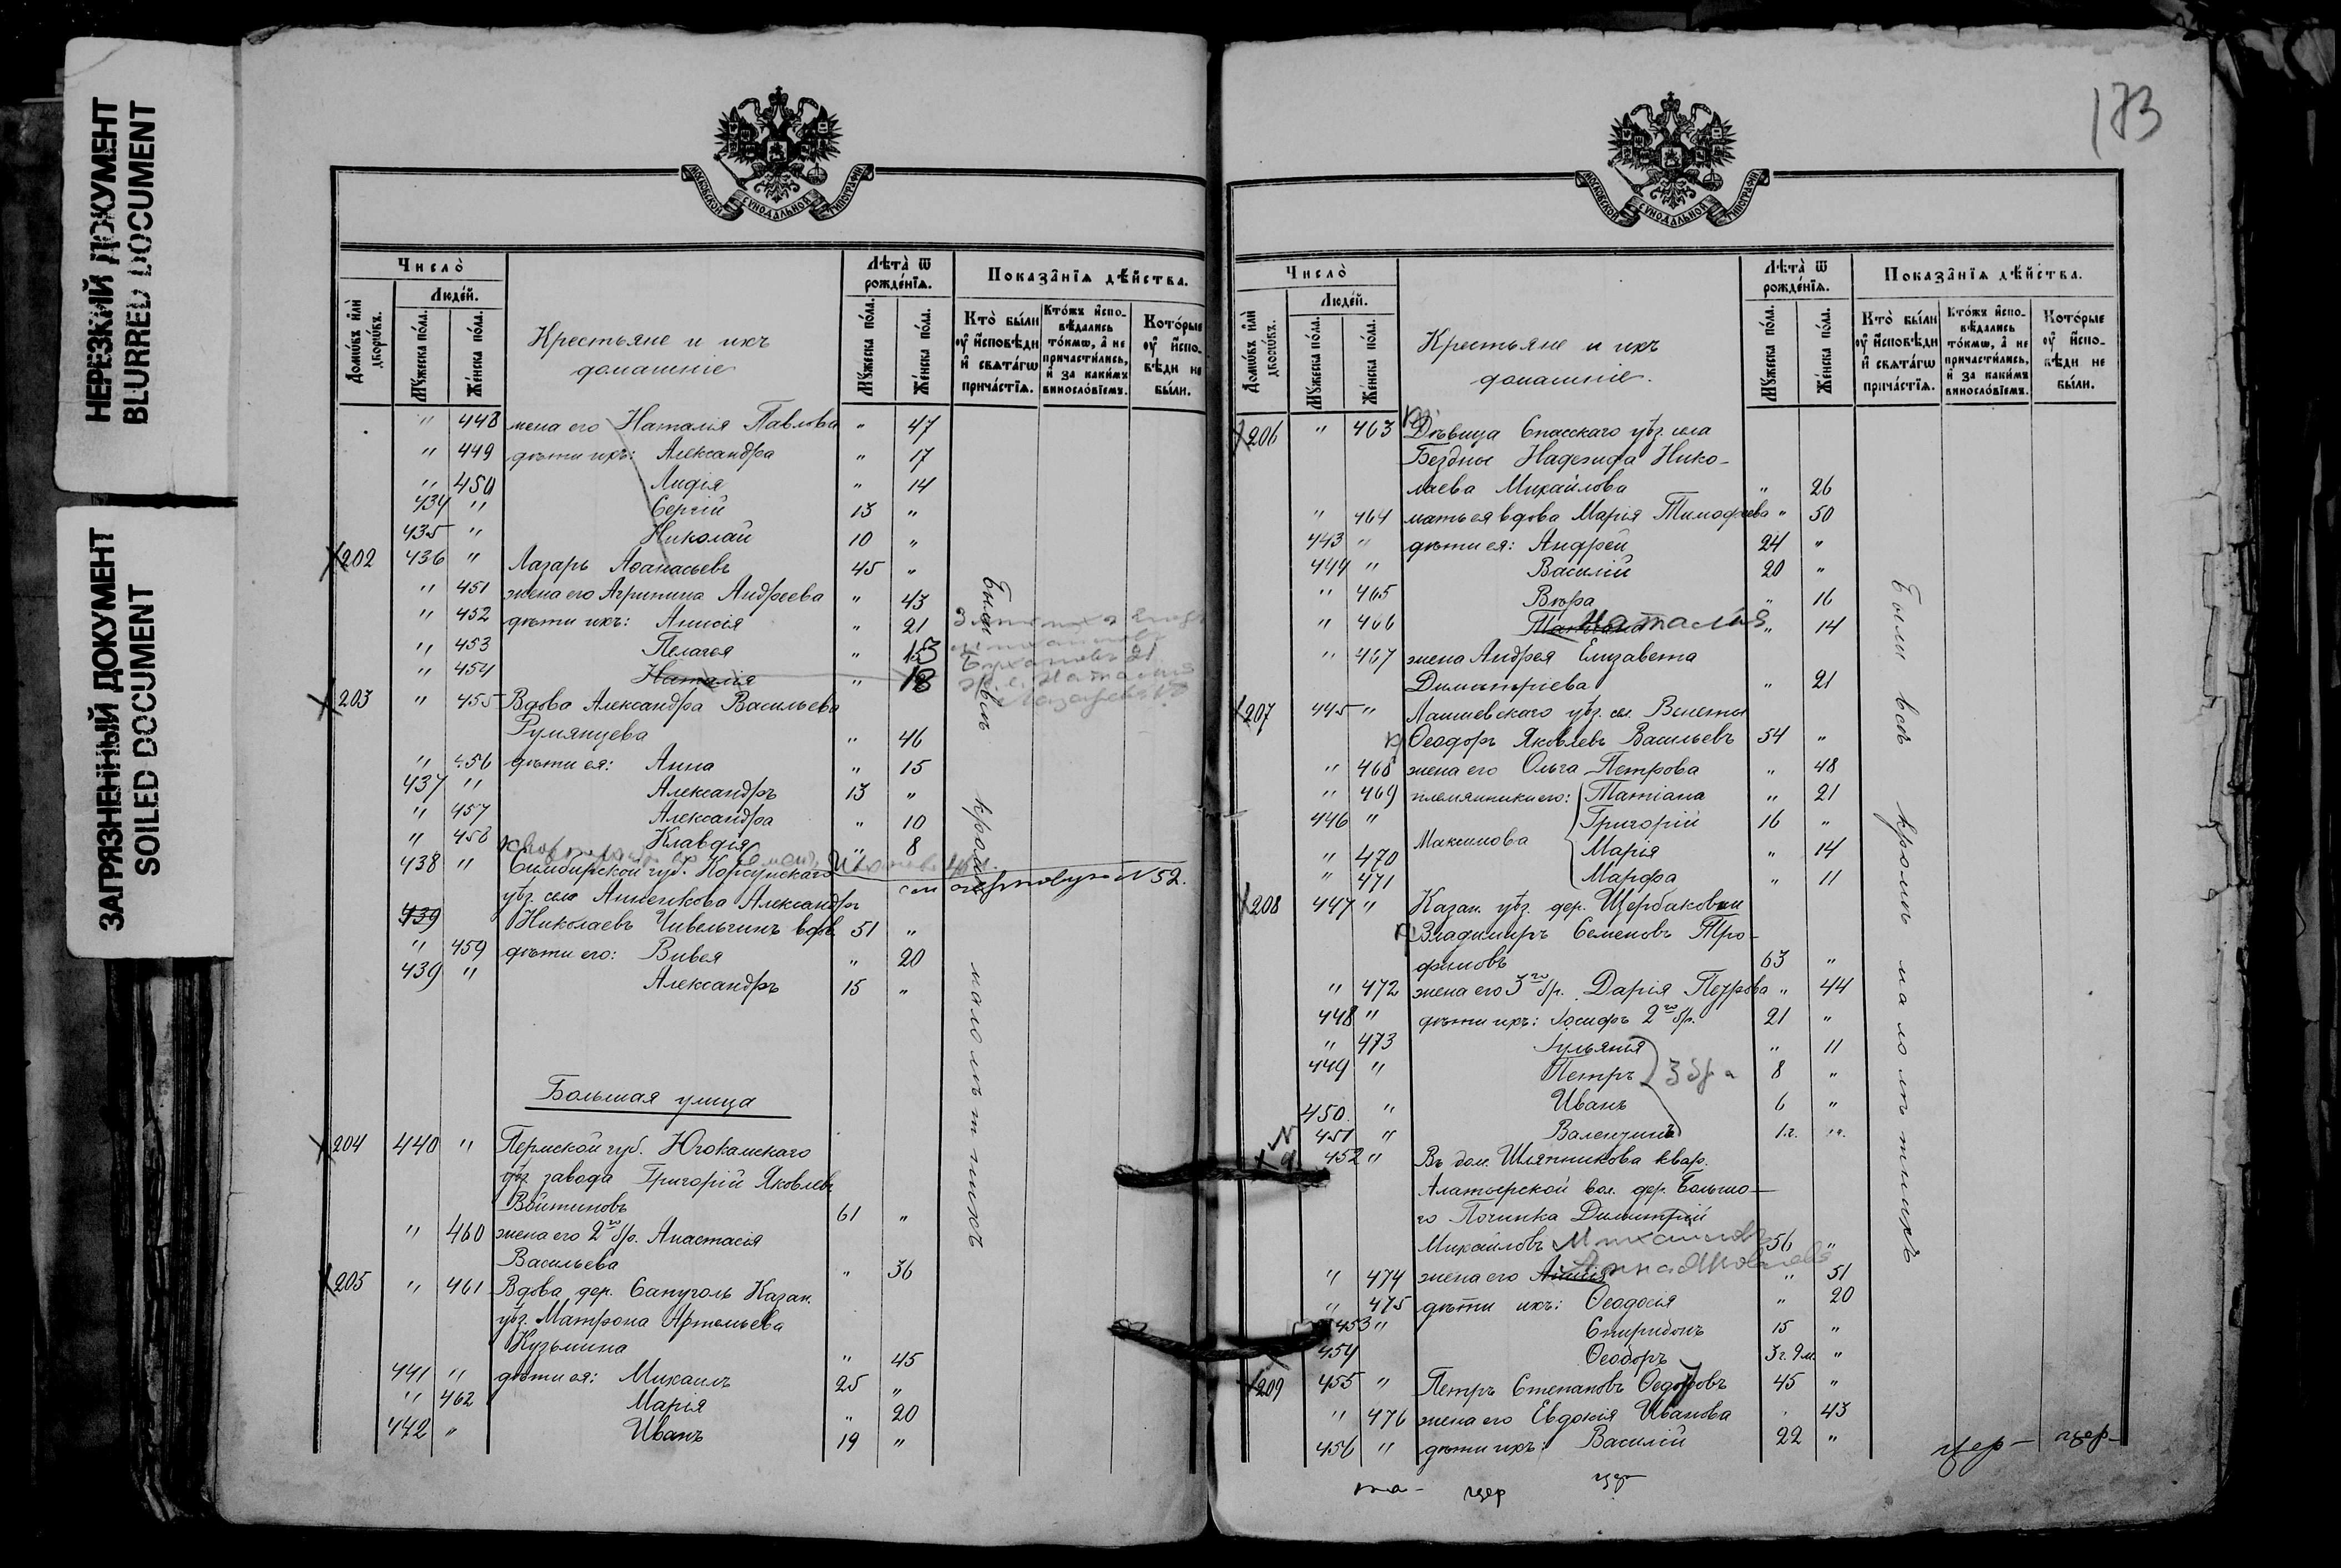 НЕРЕЗКИЙ ДОКУМЕНТ
BLURRED DOCUMENT
ЗАГРЯЗНЕННЫЙ ДОКУМЕНТ
SOILED DOCUMENT
МОСКОВСКОЙ СѴНОДАЛЬНОЙ ТИПОГРАФІИ
Число̀
Людѐй.
Домѡ́въ и҆лѝ дворѡ́въ.
Мꙋ́жеска по́ла.
Же́нска по́ла.
Крестьяне и ихъ
домашніе
Лѣ́та ѿ рожде́нїѧ.
Мꙋ́жеска по́ла.
Же́нска по́ла.
Показа̑нїѧ дѣ́йства.
Кто̀ бы́ли ᲂу҆ и҆сповѣ́ди и҆ свѧта́гѡ прича́стїѧ.
Кто́жъ и҆спо- вѣ́дались то́кмѡ, а҆ не причасти́лись, и҆ за каки́мъ винослѡ́вїемъ.
Кото́рые ᲂу҆ и҆спо- вѣ́ди не бы́ли.
" 448 жена его Наталія Павлова " 47
" 449 дѣти ихъ: Александра " 17
" 450 Лидія " 14
434 " Сергій 13 "
435 " Николай 10 "
202 436 " Лазарь Аѳанасьевъ 45 "
" 451 жена его Агрипина Андреева " 43
" 452 дѣти ихъ: Анисія " 21
" 453 Пелагея " 15
" 454 Наталія " 18
203 " 455 Вдова Александра Васильева
Румянцева " 46
" 456 дѣти ея: Анна " 15
437 " Александръ 13 "
" 457 Александра " 10
" 458 Клавдія " 8
438 " Симбирской губ. Корсунскаго
уѣз. села Анненкова Александръ
439 Николаевъ Чивельгинъ вдов. 51 "
" 459 дѣти его: Вивея " 20
439 " Александръ 15 "
№ 52.
Были всѣ кромѣ малолѣтнихъ
Большая улица
204 440 " Пермской губ. Югокамскаго
уѣз. завода Григорій Яковлевъ
Войтиновъ 61 "
" 460 жена его 2го бр. Анастасія
Васильева " 36
205 " 461 Вдова дер. Сапуголь Казан.
уѣз. Матрона Артемьева
Кузьмина " 45
441 " дѣти ея: Михаилъ 25 "
" 462 Марія " 20
442 " Иванъ 19 "
173
МОСКОВСКОЙ СѴНОДАЛЬНОЙ ТИПОГРАФІИ
Число̀
Людѐй.
Домѡ́въ и҆лѝ дворѡ́въ.
Мꙋ́жеска по́ла.
Же́нска по́ла.
Крестьяне и ихъ
домашніе.
Лѣ́та ѿ рожде́нїѧ.
Мꙋ́жеска по́ла.
Же́нска по́ла.
Показа̑нїѧ дѣ́йства.
Кто̀ бы́ли ᲂу҆ и҆сповѣ́ди и҆ свѧта́гѡ прича́стїѧ.
Кто́жъ и҆спо- вѣ́дались то́кмѡ, а҆ не причасти́лись, и҆ за каки́мъ винослѡ́вїемъ.
Кото́рые ᲂу҆ и҆спо- вѣ́ди не бы́ли.
206 " 463 Дѣвица Спасскаго уѣз. села
Бездны Надежда Нико-
лаева Михайлова " 26
" 464 мать ея вдова Марія Тимофеева " 50
443 " дѣти ея: Андрей 24 "
444 " Василій 20 "
" 465 Вѣра " 16
" 466 Наталія " 14
" 467 жена Андрея Елизавета
Димитріева " 21
207 445 " Лаишевскаго уѣз. сел. Венеты
Ѳеодоръ Яковлевъ Васильевъ 54 "
" 468 жена его Ольга Петрова " 48
" 469 племянники его: Татіана " 21
446 " Григорій 16 "
Максимова
" 470 Марія " 14
" 471 Марфа " 11
208 447 " Казан. уѣз. дер. Щербаковки
Владимиръ Семеновъ Тро-
фимовъ 63 "
" 472 жена его 3го бр. Дарія Петрова " 44
448 " дѣти ихъ: Іосифъ 2го бр. 21 "
" 473 Іульянія " 11
449 " Петръ 8 "
3 бра
450 " Иванъ 6 "
451 " Валентинъ 1 г. "
452 " Въ дом. Шляпникова квар.
Алатырской вол. дер. Большо-
го Починка Димитрій
Михайловъ 56 "
" 474 жена его Анна Яковлева " 51
" 475 дѣти ихъ: Ѳеодосія " 20
453 " Спиридонъ 15 "
454 Ѳеодоръ 3 г. 9 м. "
209 455 " Петръ Степановъ Ѳедоровъ 45 "
" 476 жена его Евдокія Иванова 43
456 " дѣти ихъ: Василій 22 "
Были всѣ кромѣ малолѣтнихъ